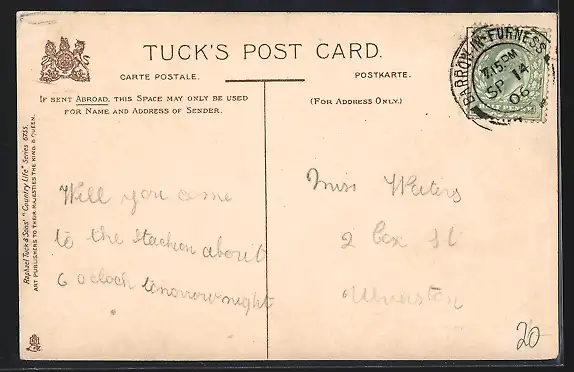 TUCK'S POST CARD.
CARTE POSTALE. POSTKARTE.
IF SENT ABROAD, THIS SPACE MAY ONLY BE USED
FOR NAME AND ADDRESS OF SENDER.
(FOR ADDRESS ONLY.)
BARROW-IN-FURNESS
7.15PM
SP 14
06
Raphael Tuck & Sons' "Country Life" Series 6735.
ART PUBLISHERS TO THEIR MAJESTIES THE KING & QUEEN.
Will you come
to the stachion about
6 oclock tomorrow night
Miss Waters
2 St
Ulverston
20